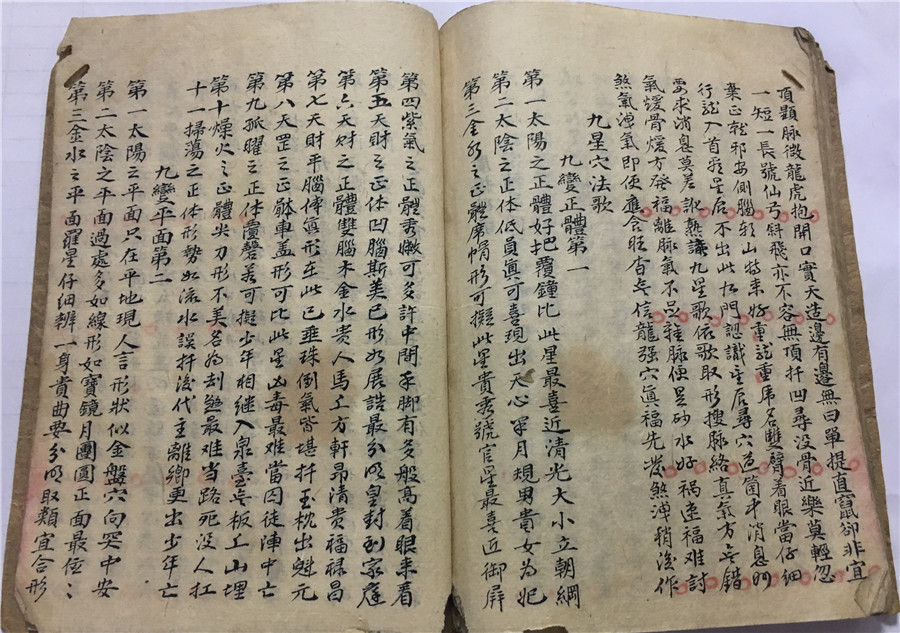 項顆脉微龍虎抱開口實天造邊有邊無曰單提直竄卻非宜
一短一長號仙弓斜飛亦不容無項扦凹尋没骨近樂莫輕忽
葉正就邪安側腦斜山特來好重龍重虎名雙臂着眼當仔細
行龍入首看星辰不出此九門認識主居尋穴道箇中消息明
要求消息莫差訛熟讀九星歌依歌取形搜脉絡真氣方無錯
氣煖骨煖方發福離脉氣不足離脉便是砂水好禍速福難討
煞氣渾氣即便應含旺杳無信龍强穴眞福先發煞渾稍後作
九星穴法歌
九變正體第一
第一太陽之正體好把覆鐘比此星最喜近清光大小立朝綱
第二太陰之正体低員眞可喜現出天心半月規男貴女為妃
第三金水之正體席帽形可擬此星貴秀號官星最喜近御屏
第四紫氣之正體秀嫩可多許中間手脚有多般高着眼來看
第五天財之正体凹腦斯美已形如展誥最分明皇封到家庭
第六天財之正體雙腦木金水貴人馬上方軒昂清貴福禄昌
第七天財平腦体眞形在此已垂珠倒氣皆堪扦玉枕出魁元
第八天罡之正体車盖形可比此星凶毒最难當囚徒陣中亡
第九孤曜之正体覆磬差可擬少年相继入泉臺無板上山埋
第十燥火之正體尖刀形不美名為刦煞最难当路死没人扛
十一掃蕩之正体形勢如流水誤扦後代主離鄉更出少年亡
九變平面第二
第一太陽之平面只在平地現人言形狀似金盤穴向突中安
第二太陰之平面過處多如線形如寶鏡月團圓正面最位〻
第三金水之平面羅星仔细辨一身貴曲要分明取類宜合形